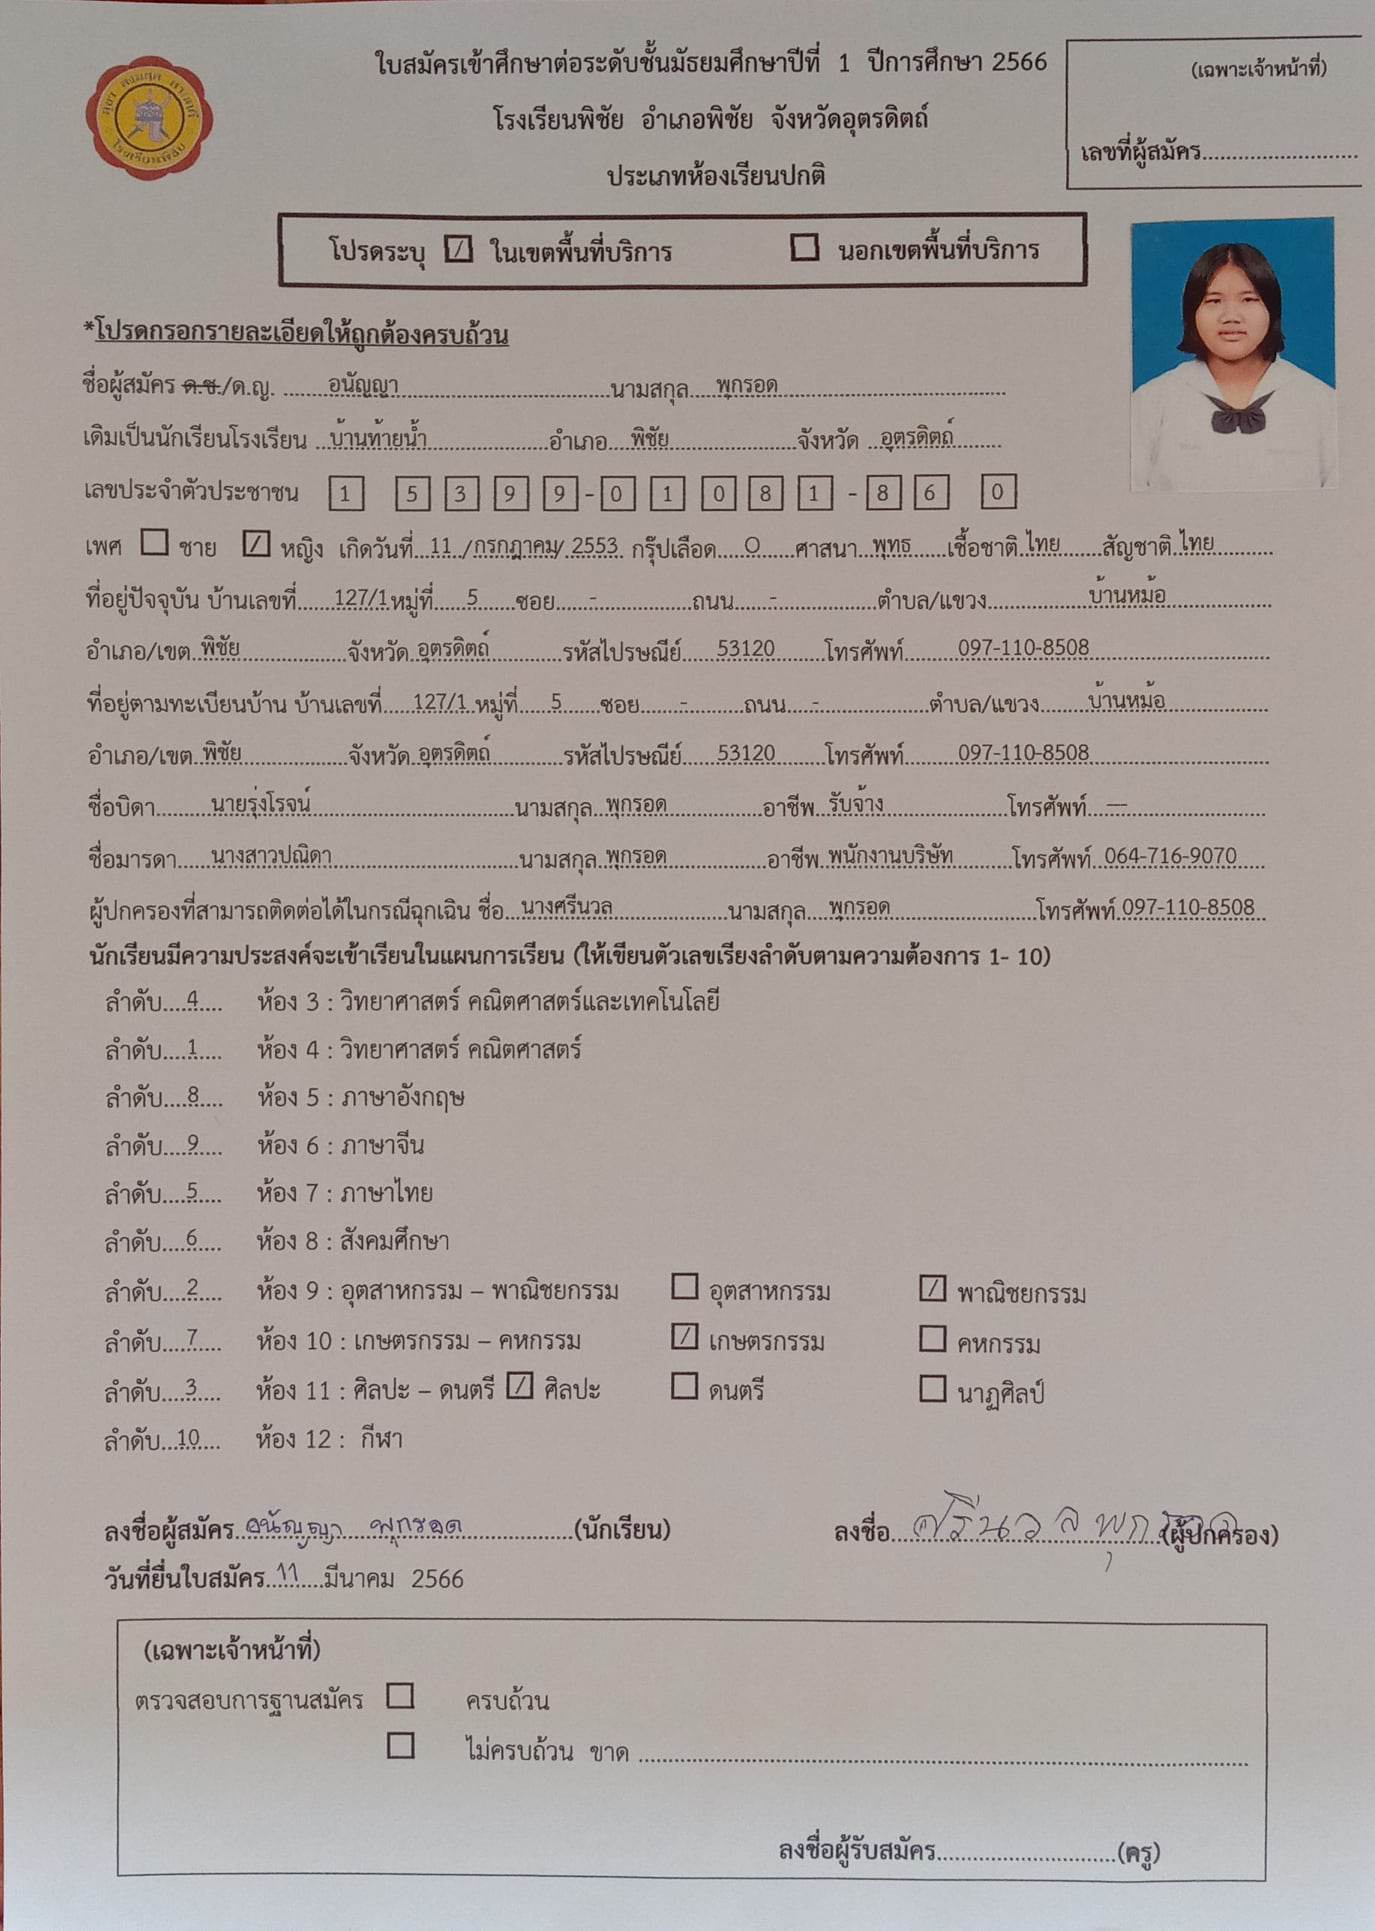 ใบสมัครเข้าศึกษาต่อระดับชั้นมัธยมศึกษาปีที่ 1 ปีการศึกษา 2566
(เฉพาะเจ้าหน้าที่)
โรงเรียนพิชัย อำเภอพิชัย จังหวัดอุตรดิตถ์
เลขที่ผู้สมัคร..........................
ประเภทห้องเรียนปกติ
โปรดระบุ [/] ในเขตพื้นที่บริการ [ ] นอกเขตพื้นที่บริการ
*โปรดกรอกรายละเอียดให้ถูกต้องครบถ้วน
ชื่อผู้สมัคร ด.ช./ด.ญ. ........อนัญญา........นามสกุล.....พุกรอด........
เดิมเป็นนักเรียนโรงเรียน ...บ้านท้ายน้ำ........อำเภอ....พิชัย........จังหวัด ...อุตรดิตถ์........
เลขประจำตัวประชาชน 1 5 3 9 9 - 0 1 0 8 1 - 8 6 0
เพศ [ ] ชาย [/] หญิง เกิดวันที่...11.../กรกฎาคม/ 2553.. กรุ๊ปเลือด.....O......ศาสนา...พุทธ......เชื้อชาติ.ไทย.......สัญชาติ.ไทย..........
ที่อยู่ปัจจุบัน บ้านเลขที่......127/1หมู่ที่......5......ซอย......-........ถนน......-........ตำบล/แขวง........บ้านหม้อ........
อำเภอ/เขต..พิชัย........จังหวัด..อุตรดิตถ์........รหัสไปรษณีย์......53120........โทรศัพท์........097-110-8508........
ที่อยู่ตามทะเบียนบ้าน บ้านเลขที่.....127/1 หมู่ที่......5......ซอย......-........ถนน.....-........ตำบล/แขวง........บ้านหม้อ........
อำเภอ/เขต..พิชัย........จังหวัด..อุตรดิตถ์........รหัสไปรษณีย์......53120........โทรศัพท์........097-110-8508........
ชื่อบิดา........นายรุ่งโรจน์........นามสกุล..พุกรอด........อาชีพ..รับจ้าง........โทรศัพท์...—........
ชื่อมารดา......นางสาวปณิดา........นามสกุล..พุกรอด........อาชีพ.พนักงานบริษัท........โทรศัพท์..064-716-9070.....
ผู้ปกครองที่สามารถติดต่อได้ในกรณีฉุกเฉิน ชื่อ...นางศรีนวล........นามสกุล....พุกรอด........โทรศัพท์.097-110-8508..
นักเรียนมีความประสงค์จะเข้าเรียนในแผนการเรียน (ให้เขียนตัวเลขเรียงลำดับตามความต้องการ 1- 10)
ลำดับ....4..... ห้อง 3 : วิทยาศาสตร์ คณิตศาสตร์และเทคโนโลยี
ลำดับ....1..... ห้อง 4 : วิทยาศาสตร์ คณิตศาสตร์
ลำดับ....8..... ห้อง 5 : ภาษาอังกฤษ
ลำดับ....9..... ห้อง 6 : ภาษาจีน
ลำดับ....5..... ห้อง 7 : ภาษาไทย
ลำดับ....6..... ห้อง 8 : สังคมศึกษา
ลำดับ....2..... ห้อง 9 : อุตสาหกรรม – พาณิชยกรรม [ ] อุตสาหกรรม [/] พาณิชยกรรม
ลำดับ....7..... ห้อง 10 : เกษตรกรรม – คหกรรม [/] เกษตรกรรม [ ] คหกรรม
ลำดับ....3..... ห้อง 11 : ศิลปะ – ดนตรี [/] ศิลปะ [ ] ดนตรี [ ] นาฏศิลป์
ลำดับ...10.... ห้อง 12 : กีฬา
ลงชื่อผู้สมัคร..อนัญญา พุกรอด........(นักเรียน) ลงชื่อ....ศรีนวล พุกรอด....(ผู้ปกครอง)
วันที่ยื่นใบสมัคร..11....มีนาคม 2566
(เฉพาะเจ้าหน้าที่)
ตรวจสอบการฐานสมัคร [ ] ครบถ้วน
[ ] ไม่ครบถ้วน ขาด ........................................
ลงชื่อผู้รับสมัคร..............................(ครู)